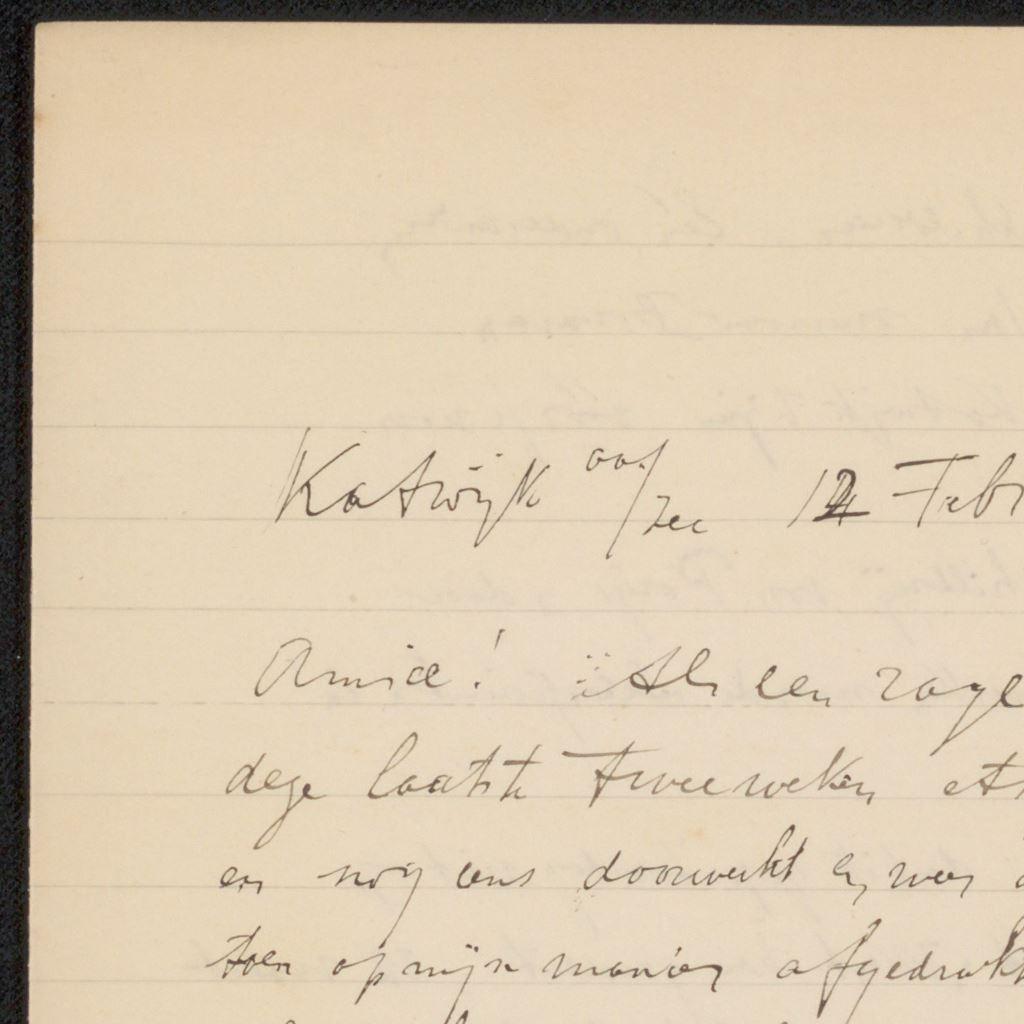 Katwijk aa/zee 12 Febr
Amice! Als een raze
deze laatste twee weken ets
en nog eens doorwerkt en weer
toen op mijn manier afgedrukt